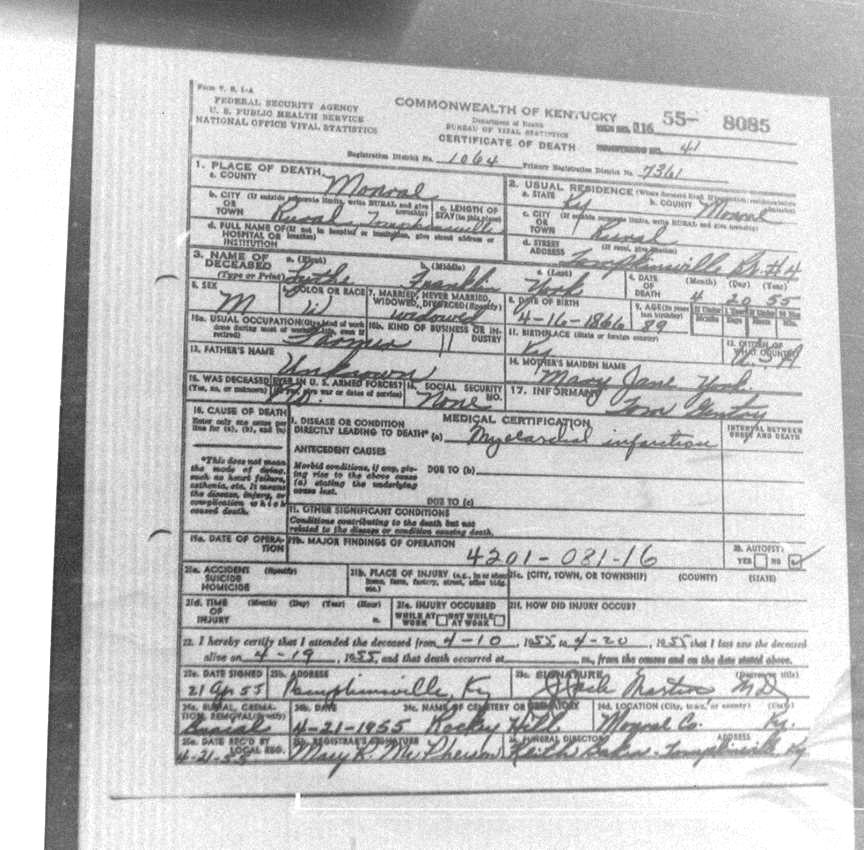 Form V. S. 1-A
FEDERAL SECURITY AGENCY
U. S. PUBLIC HEALTH SERVICE
NATIONAL OFFICE VITAL STATISTICS
COMMONWEALTH OF KENTUCKY
Department of Health
BUREAU OF VITAL STATISTICS
CERTIFICATE OF DEATH
116 55- 8085
41
Registration District No. 1064 Primary Registration District No. 7361
1. PLACE OF DEATH
a. COUNTY Monroe
2. USUAL RESIDENCE
a. STATE Ky b. COUNTY Monroe
b. CITY (If outside corporate limits, write RURAL and give township)
OR
TOWN Rural Tompkinsville
c. LENGTH OF
STAY (in this place)
c. CITY (If outside corporate limits, write RURAL and give township)
OR
TOWN Rural
d. FULL NAME OF (If not in hospital or institution, give street address or location)
HOSPITAL OR
INSTITUTION
d. STREET (If rural, give location)
ADDRESS Tompkinsville Rt. #4
3. NAME OF
DECEASED
(Type or Print)
a. (First) b. (Middle) Franklin c. (Last) York
4. DATE
OF
DEATH (Month) (Day) (Year)
4 20 55
5. SEX M
6. COLOR OR RACE W
7. MARRIED, NEVER MARRIED,
WIDOWED, DIVORCED (Specify) widowed
8. DATE OF BIRTH 4-16-1866
9. AGE (In years last birthday) 89
10a. USUAL OCCUPATION (Give kind of work done during most of working life, even if retired)
10b. KIND OF BUSINESS OR INDUSTRY
11. BIRTHPLACE (State or foreign country)
Ky
12. CITIZEN OF
WHAT COUNTRY
U.S.A
13. FATHER'S NAME
Unknown
14. MOTHER'S MAIDEN NAME
Mary Jane York
15. WAS DECEASED EVER IN U. S. ARMED FORCES?
(Yes, no, or unknown) (If yes, give war or dates of service)
16. SOCIAL SECURITY
NO.
None
17. INFORMANT
Tom
18. CAUSE OF DEATH
Enter only one cause per
line for (a), (b), and (c)
MEDICAL CERTIFICATION
INTERVAL BETWEEN
ONSET AND DEATH
I. DISEASE OR CONDITION
DIRECTLY LEADING TO DEATH* (a) Myocardial infarction
*This does not mean
the mode of dying,
such as heart failure,
asthenia, etc. It means
the disease, injury, or
complication which
caused death.
ANTECEDENT CAUSES
Morbid conditions, if any, giving
rise to the above cause
(a) stating the underlying
cause last.
DUE TO (b)
DUE TO (c)
11. OTHER SIGNIFICANT CONDITIONS
Conditions contributing to the death but not
related to the disease or condition causing death.
19a. DATE OF OPERATION
19b. MAJOR FINDINGS OF OPERATION
4201-081-16
20. AUTOPSY?
YES NO
21a. ACCIDENT (Specify)
SUICIDE
HOMICIDE
21b. PLACE OF INJURY (e.g., in or about home, farm, factory, street, office bldg. etc.)
21c. (CITY, TOWN, OR TOWNSHIP) (COUNTY) (STATE)
21d. TIME (Month) (Day) (Year) (Hour)
OF
INJURY m.
21e. INJURY OCCURRED
WHILE AT WORK NOT WHILE AT WORK
21f. HOW DID INJURY OCCUR?
22. I hereby certify that I attended the deceased from 4-10, 1955 to 4-20, 1955 that I last saw the deceased
alive on 4-19, 1955, and that death occurred at m., from the causes and on the date stated above.
23a. DATE SIGNED
21 Ap 55
23b. ADDRESS
Tompkinsville, Ky
23c. SIGNATURE (Degree or title)
Martin MD
24a. BURIAL, CREMATION, REMOVAL (Specify)
Burial
24b. DATE
4-21-1955
24c. NAME OF CEMETERY OR CREMATORY
Rockey Hill
24d. LOCATION (City, town, or county) (State)
Monroe Co. Ky.
25a. DATE REC'D BY
LOCAL REG.
4-21-55
25b. REGISTRAR'S SIGNATURE
Mary R. McPherson
26. FUNERAL DIRECTOR ADDRESS
Keith Tompkinsville, Ky